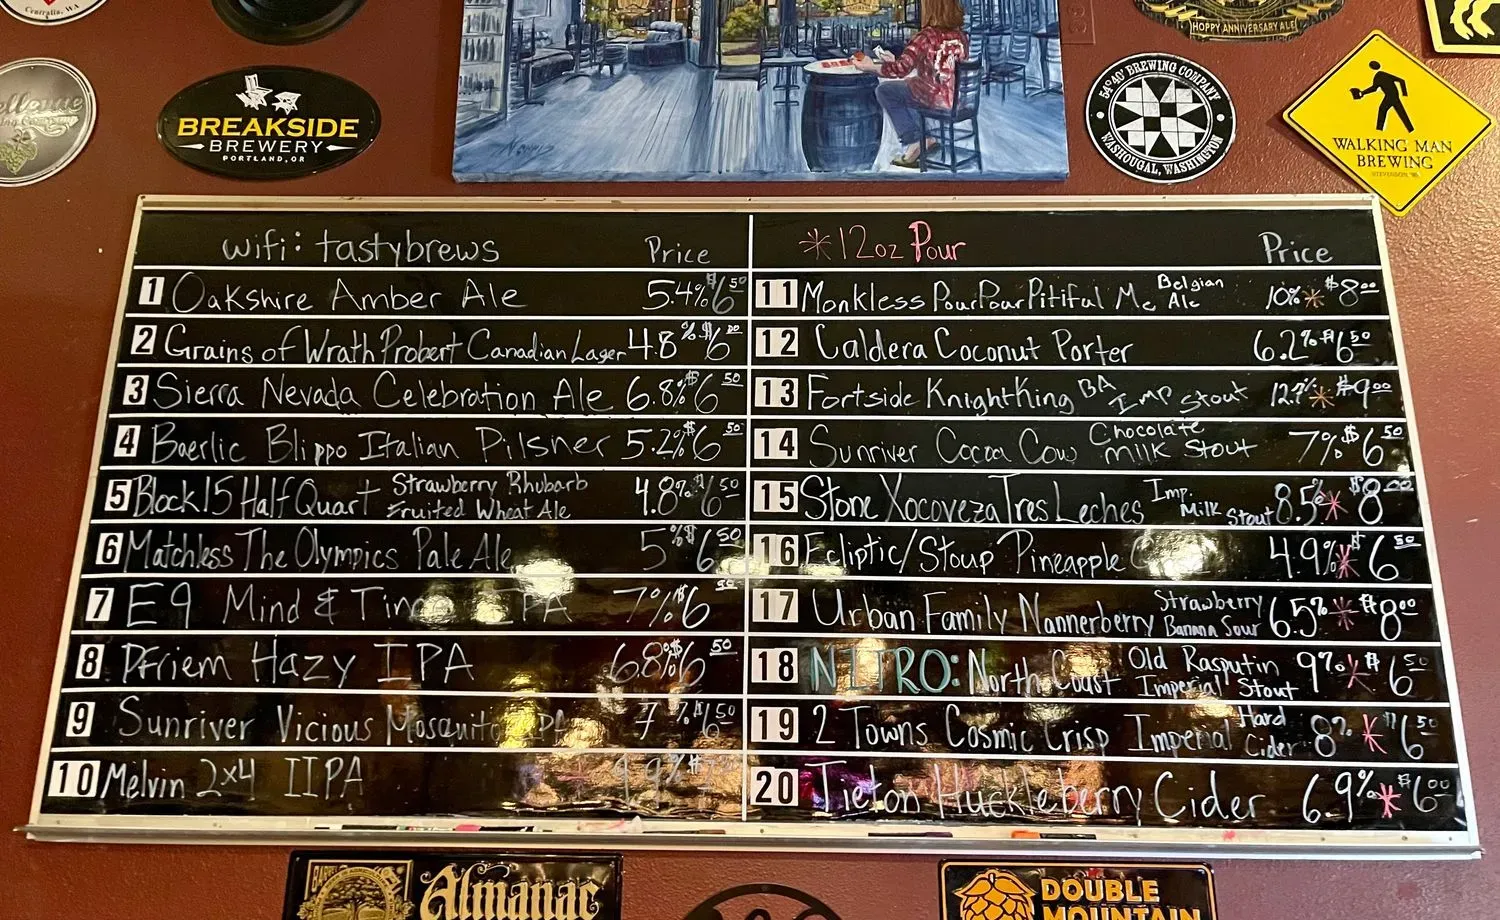 Centralia, WA
HOPPY ANNIVERSARY ALE
BREAKSIDE
BREWERY
PORTLAND, OR
54°40' BREWING COMPANY
WASHOUGAL, WASHINGTON
WALKING MAN
BREWING
wifi: tastybrews Price
1 Oakshire Amber Ale 5.4% $6.50
2 Grains of Wrath Probert Canadian Lager 4.8% $6.00
3 Sierra Nevada Celebration Ale 6.8% $6.50
4 Baerlic Blippo Italian Pilsner 5.2% $6.50
5 Block 15 Half Quart Strawberry Rhubarb Fruited Wheat Ale 4.8% $6.50
6 Matchless The Olympics Pale Ale 5% $6.50
7 E9 Mind & IPA 7% $6
8 Pfriem Hazy IPA 6.8% $6.50
9 Sunriver Vicious Mosquito IPA 7% $6.50
10 Melvin 2x4 IIPA
*12oz Pour Price
11 Monkless PourPourPitiful Me Belgian Ale 10% * $8.00
12 Caldera Coconut Porter 6.2% $6.50
13 Fortside KnightKing BA Imp Stout 12.7% * $9.00
14 Sunriver Cocoa Cow Chocolate Milk Stout 7% $6.50
15 Stone Xocoveza Tres Leches Imp. Milk Stout 8.5% * $8.00
16 Ecliptic/Stoup Pineapple 4.9% * $6.50
17 Urban Family Nannerberry Strawberry Banana Sour 6.5% * $8.00
18 NITRO: North Coast Old Rasputin Imperial Stout 9% * $6.50
19 2 Towns Cosmic Crisp Imperial Hard Cider 8% * $6.50
20 Tieton Huckleberry Cider 6.9% * $6.00
Almanac
DOUBLE
MOUNTAIN